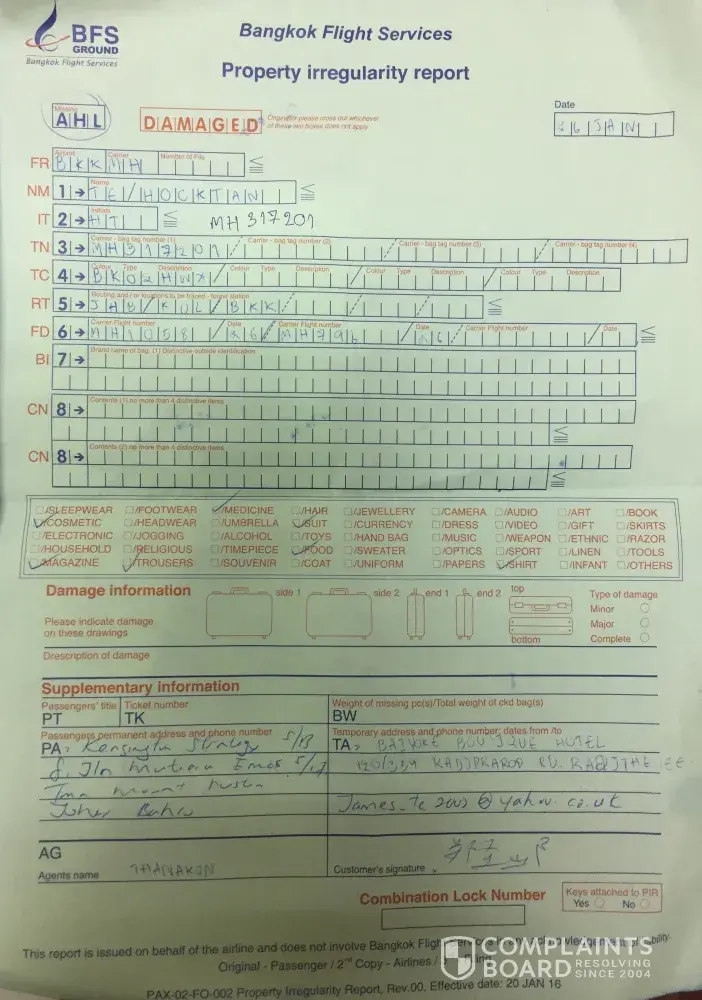 BFS
GROUND
Bangkok Flight Services
Bangkok Flight Services
Property irregularity report
Missing
AHL
DAMAGED
Originator please cross out whichever
of these two boxes does not apply
Date
26 JAN
FR Airport Carrier Number of PIRs
BKK MH
NM 1 Name
TE/HOCKTAN
IT 2 Initials
HT MH 317201
TN 3 Carrier - bag tag number (1) Carrier - bag tag number (2) Carrier - bag tag number (3) Carrier - bag tag number (4)
MH317201
TC 4 Colour Type Description Colour Type Description Colour Type Description Colour Type Description
BK02HWX
RT 5 Routing and/or locations to be traced - target station
JHB/KUL/BKK
FD 6 Carrier Flight number Date Carrier Flight number Date Carrier Flight number Date
MH1058 / 26 / MH796 / 26
BI 7 Brand name of bag: (1) Distinctive outside identification
CN 8 Contents (1) no more than 4 distinctive items
CN 8 Contents (2) no more than 4 distinctive items
/SLEEPWEAR /FOOTWEAR /MEDICINE /HAIR /JEWELLERY /CAMERA /AUDIO /ART /BOOK
/COSMETIC /HEADWEAR /UMBRELLA /SUIT /CURRENCY /DRESS /VIDEO /GIFT /SKIRTS
/ELECTRONIC /JOGGING /ALCOHOL /TOYS /HAND BAG /MUSIC /WEAPON /ETHNIC /RAZOR
/HOUSEHOLD /RELIGIOUS /TIMEPIECE /FOOD /SWEATER /OPTICS /SPORT /LINEN /TOOLS
/MAGAZINE /TROUSERS /SOUVENIR /COAT /UNIFORM /PAPERS /SHIRT /INFANT /OTHERS
Damage information
side 1 side 2 end 1 end 2 top
bottom
Type of damage
Please indicate damage
on these drawings
Minor
Major
Complete
Drescription of damage
Supplementary information
Passengers' title Ticket number Weight of missing pc(s)/Total weight of ckd bag(s)
PT TK BW
Passengers permanent address and phone number Temporary address and phone number; dates from /to
PA: Kensington Strategy S/B TA: BAIYOKE BOUTIQUE HOTEL
Jln Mutiara Emas 5/17
Johor Bahru James_Te2002@yahoo.co.uk
AG
Agents name THANAKON Customer's signature
Combination Lock Number
Keys attached to PIR
Yes No
This report is issued on behalf of the airline and does not involve Bangkok Flight Services in any acknowledgement of liability.
Original - Passenger / 2nd Copy - Airlines / 3
PAX-02-FO-002 Property Irregularity Report, Rev.00, Effective date: 20 JAN 16
COMPLAINTS
BOARD RESOLVING
SINCE 2004